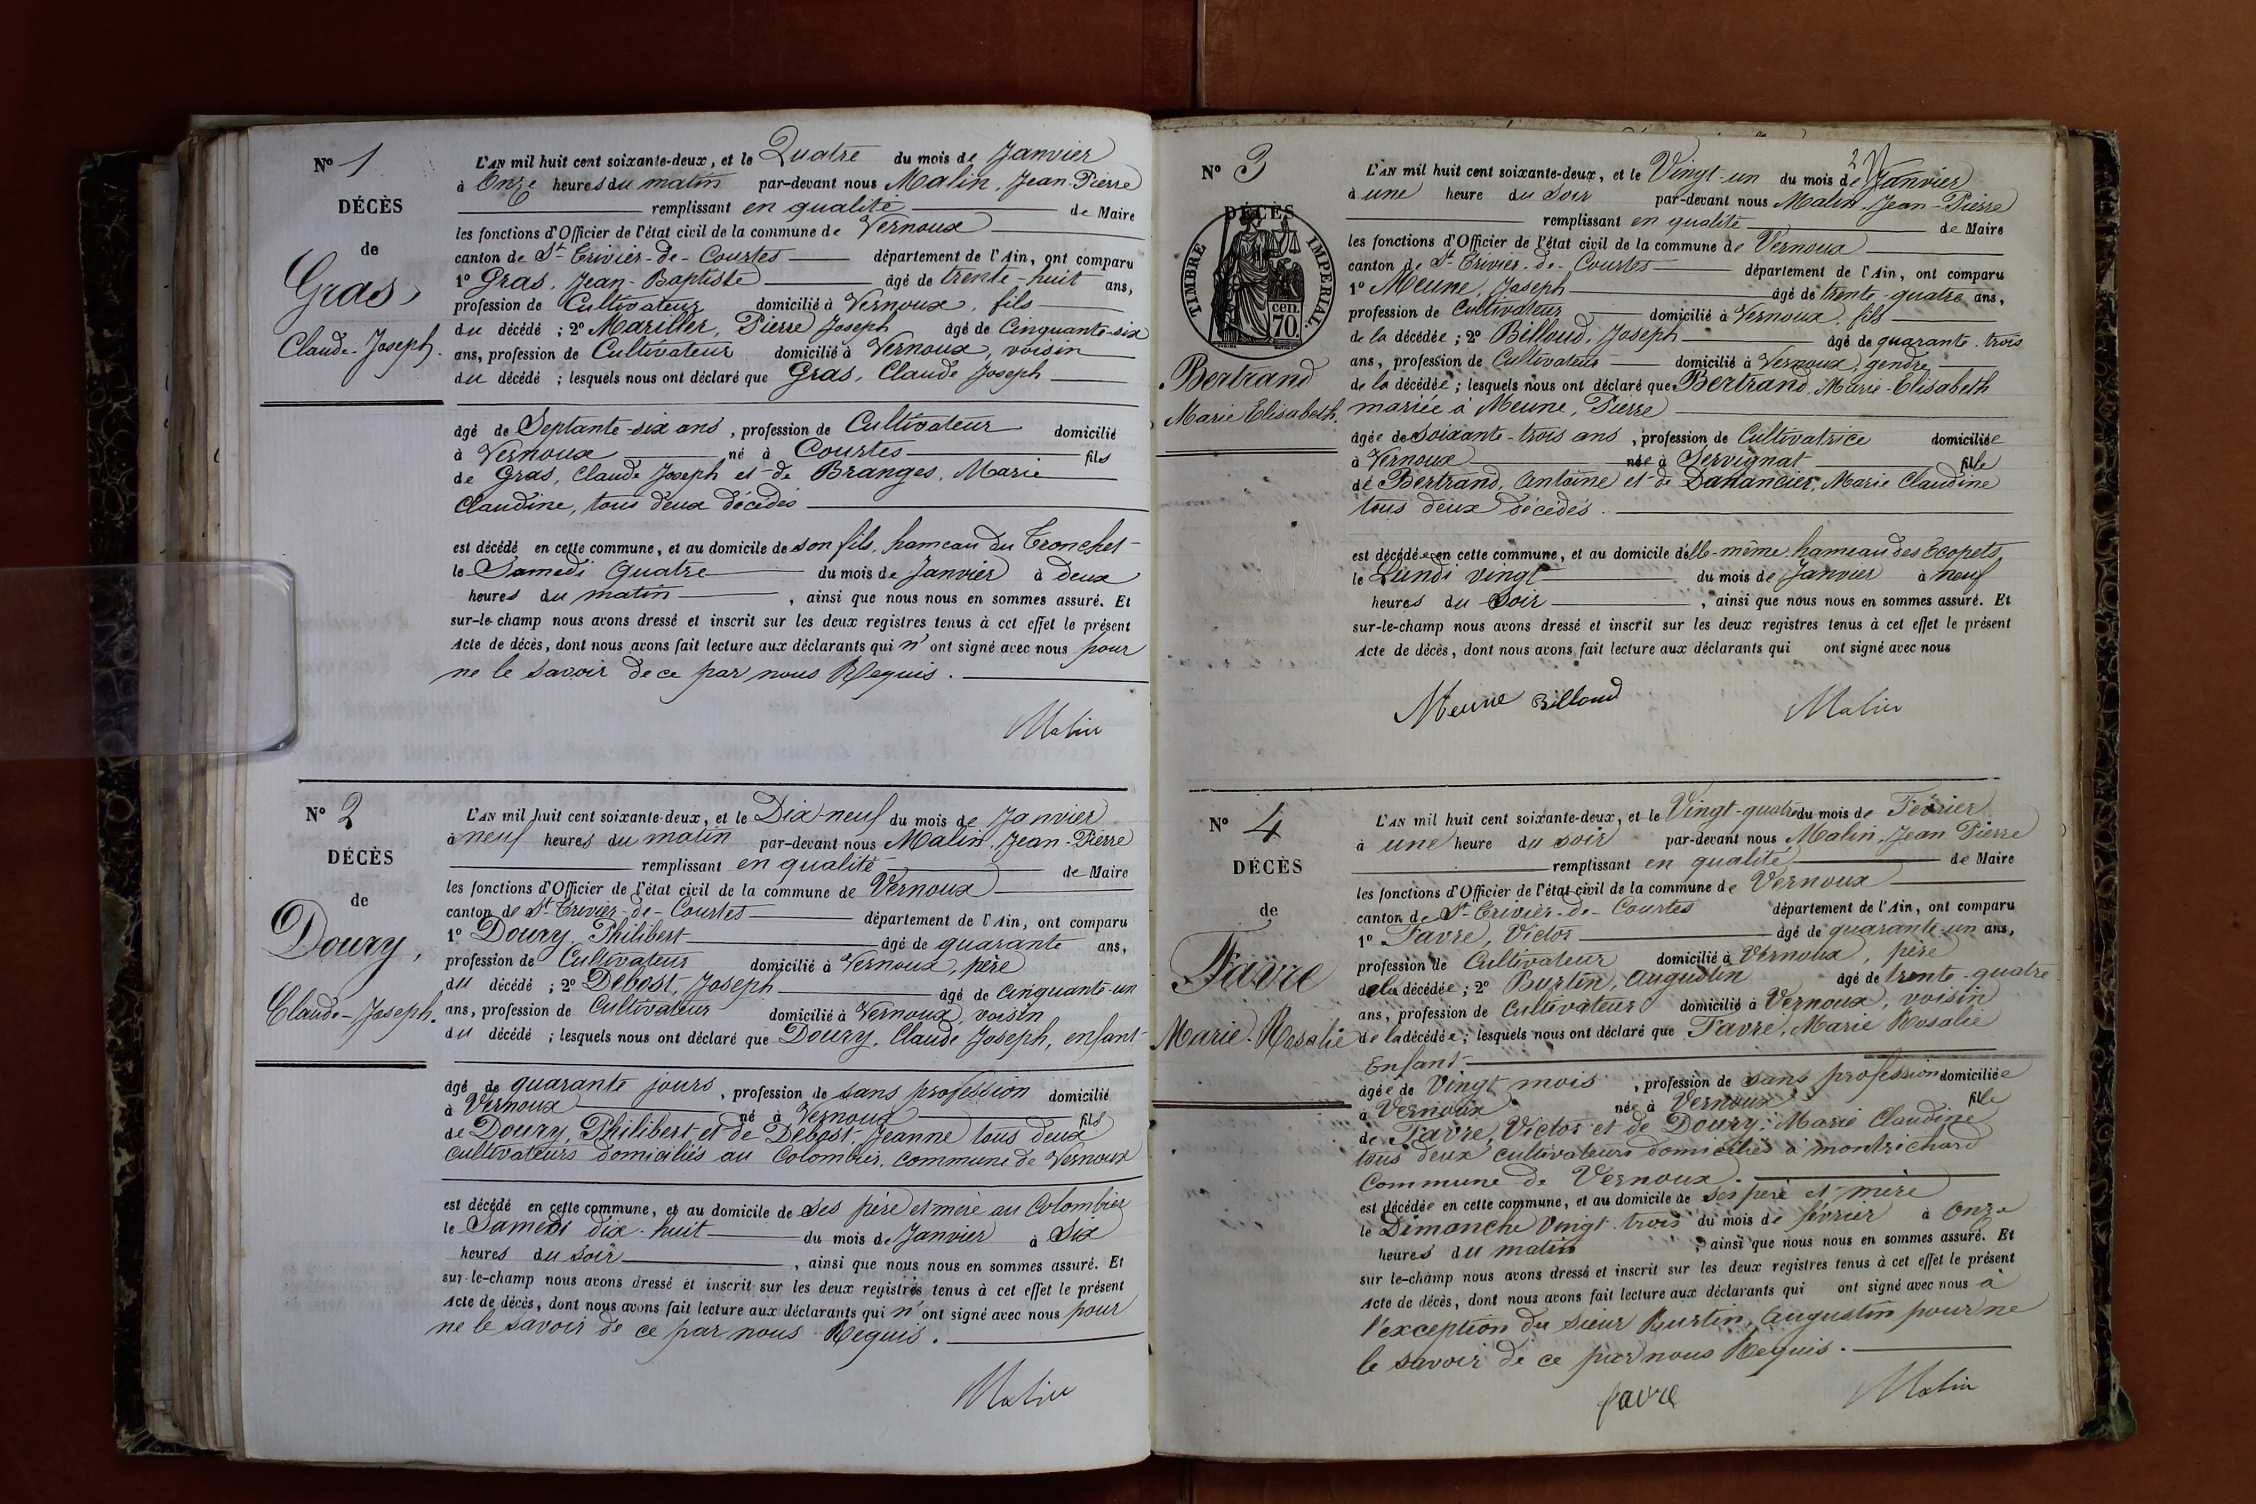 N° 1
DÉCÈS
de
Gras,
Claude-Joseph.
L'AN mil huit cent soixante-deux, et le Quatre du mois de Janvier
à Onze heures du matin par-devant nous Malin, Jean-Pierre
remplissant en qualité de Maire
les fonctions d'Officier de l'état civil de la commune de Vernoux
canton de St Trivier-de-Courtes département de l'Ain, ont comparu
1° Gras, Jean-Baptiste âgé de trente-huit ans,
profession de Cultivateur domicilié à Vernoux, fils
du décédé ; 2° Mariller, Pierre Joseph âgé de Cinquante-six
ans, profession de Cultivateur domicilié à Vernoux, voisin
du décédé ; lesquels nous ont déclaré que Gras, Claude Joseph
âgé de Septante-six ans, profession de Cultivateur domicilié
à Vernoux né à Courtes fils
de Gras, Claude Joseph et de Branges, Marie
Claudine, tous deux décédés
est décédé en cette commune, et au domicile de son fils, hameau du Tronchet
le Samedi Quatre du mois de Janvier à deux
heures du matin, ainsi que nous nous en sommes assuré. Et
sur-le-champ nous avons dressé et inscrit sur les deux registres tenus à cet effet le présent
Acte de décès, dont nous avons fait lecture aux déclarants qui n'ont signé avec nous pour
ne le savoir de ce par nous Requis.
Malin
N° 2
DÉCÈS
de
Doury,
Claude-Joseph.
L'AN mil huit cent soixante-deux, et le Dix-neuf du mois de Janvier
à neuf heures du matin par-devant nous Malin, Jean-Pierre
remplissant en qualité de Maire
les fonctions d'Officier de l'état civil de la commune de Vernoux
canton de St Trivier-de-Courtes département de l'Ain, ont comparu
1° Doury, Philibert âgé de quarante ans,
profession de Cultivateur domicilié à Vernoux, père
du décédé ; 2° Debost, Joseph âgé de cinquante-un
ans, profession de Cultivateur domicilié à Vernoux, voisin
du décédé ; lesquels nous ont déclaré que Doury, Claude Joseph, enfant
âgé de quarante jours, profession de sans profession domicilié
à Vernoux né à Vernoux fils
de Doury, Philibert et de Debost, Jeanne tous deux
cultivateurs domiciliés au Colombier, commune de Vernoux
est décédé en cette commune, et au domicile de ses père et mère au Colombier
le Samedi dix-huit du mois de Janvier à Six
heures du soir, ainsi que nous nous en sommes assuré. Et
sur-le-champ nous avons dressé et inscrit sur les deux registres tenus à cet effet le présent
Acte de décès, dont nous avons fait lecture aux déclarants qui n'ont signé avec nous pour
ne le savoir de ce par nous Requis.
Malin
N° 3
DÉCÈS
TIMBRE IMPERIAL.
70 cen.
Bertrand
Marie Elisabeth.
L'AN mil huit cent soixante-deux, et le Vingt-un du mois de Janvier
à une heure du soir par-devant nous Malin, Jean-Pierre
remplissant en qualité de Maire
les fonctions d'Officier de l'état civil de la commune de Vernoux
canton de St Trivier-de-Courtes département de l'Ain, ont comparu
1° Meune, Joseph âgé de trente-quatre ans,
profession de Cultivateur domicilié à Vernoux, fils
de la décédée ; 2° Billoud, Joseph âgé de quarante-trois
ans, profession de Cultivateur domicilié à Vernoux, gendre
de la décédée ; lesquels nous ont déclaré que Bertrand, Marie-Elisabeth
mariée à Meune, Pierre
âgée de soixante-trois ans, profession de Cultivatrice domiciliée
à Vernoux née à Servignat fille
de Bertrand, Antoine et de Danancier, Marie Claudine
tous deux décédés.
est décédée en cette commune, et au domicile d'elle-même hameau des Ecopets,
le Lundi vingt du mois de Janvier à neuf
heures du Soir, ainsi que nous nous en sommes assuré. Et
sur-le-champ nous avons dressé et inscrit sur les deux registres tenus à cet effet le présent
Acte de décès, dont nous avons fait lecture aux déclarants qui ont signé avec nous
Meune Billoud Malin
N° 4
DÉCÈS
de
Favre
Marie-Rosalie
L'AN mil huit cent soixante-deux, et le Vingt-quatre du mois de Février
à une heure du soir par-devant nous Malin, Jean Pierre
remplissant en qualité de Maire
les fonctions d'Officier de l'état civil de la commune de Vernoux
canton de St Trivier-de-Courtes département de l'Ain, ont comparu
1° Favre, Victor âgé de quarante-un ans,
profession de Cultivateur domicilié à Vernoux, père
de la décédée ; 2° Burtin, Augustin âgé de trente-quatre
ans, profession de Cultivateur domicilié à Vernoux, voisin
de la décédée ; lesquels nous ont déclaré que Favre, Marie Rosalie
Enfant
âgée de Vingt mois, profession de sans profession domiciliée
à Vernoux née à Vernoux fille
de Favre, Victor et de Doury, Marie Claudine
tous deux cultivateurs domiciliés à montrichard
Commune de Vernoux.
est décédée en cette commune, et au domicile de ses père et mère
le Dimanche Vingt-trois du mois de février à Onze
heures du matin, ainsi que nous nous en sommes assuré. Et
sur le-champ nous avons dressé et inscrit sur les deux registres tenus à cet effet le présent
Acte de décès, dont nous avons fait lecture aux déclarants qui ont signé avec nous à
l'exception du sieur Burtin, Augustin pour ne
le savoir de ce par nous Requis.
favre Malin